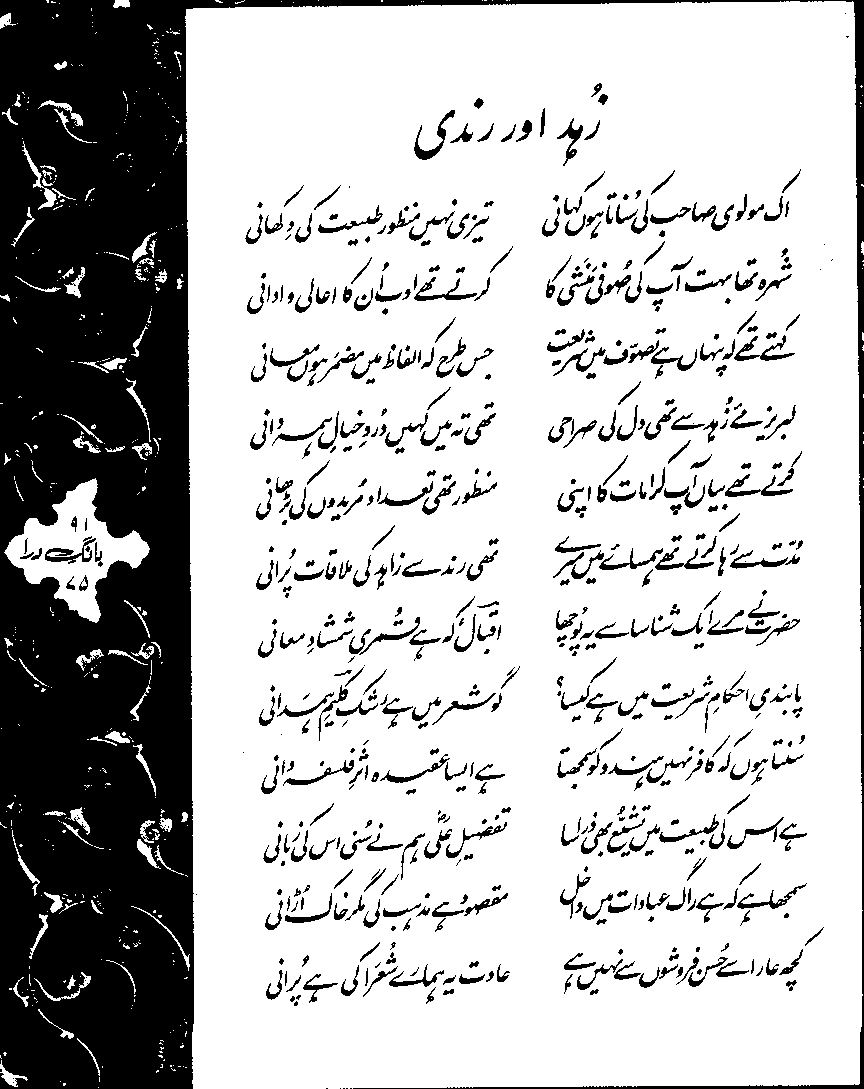 زُہد اور رندی
اک مولوی صاحب کی سُناتا ہوں کہانی تیزی نہیں منظور طبیعت کی دِکھانی
شُہرہ تھا بہت آپ کی صُوفی مَنَشی کا کرتے تھے ادب اُن کا اعالی و ادانی
کہتے تھے کہ پنہاں ہے تصوّف میں شریعت جس طرح کہ الفاظ میں مضمَر ہوں معانی
لبریز مئے زُہد سے تھی دل کی صراحی تھی تہ میں کہیں دُردِ خیالِ ہمہ دانی
کرتے تھے بیاں آپ کرامات کا اپنی منظور تھی تعداد مُریدوں کی بڑھانی
مُدّت سے رہا کرتے تھے ہمسائے میں میرے تھی رند سے زاہد کی ملاقات پُرانی
حضرت نے مرے ایک شناسا سے یہ پُوچھا اقبالؔ کہ ہے قُمریِ شمشادِ معانی
پابندیِ احکامِ شریعت میں ہے کیسا؟ گو شعر میں ہے رشکِ کلیمِؔ ہمدانی
سُنتا ہوں کہ کافر نہیں ہندو کو سمجھتا ہے ایسا عقیدہ اثَرِ فلسفہ دانی
ہے اس کی طبیعت میں تشیُّع بھی ذرا سا تفضیلِ علیؓ ہم نے سُنی اس کی زبانی
سمجھا ہے کہ ہے راگ عبادات میں داخل مقصود ہے مذہب کی مگر خاک اُڑانی
کچھ عار اسے حُسن فروشوں سے نہیں ہے عادت یہ ہمارے شُعَرا کی ہے پُرانی
۹۱
بانگِ درا
۷۵